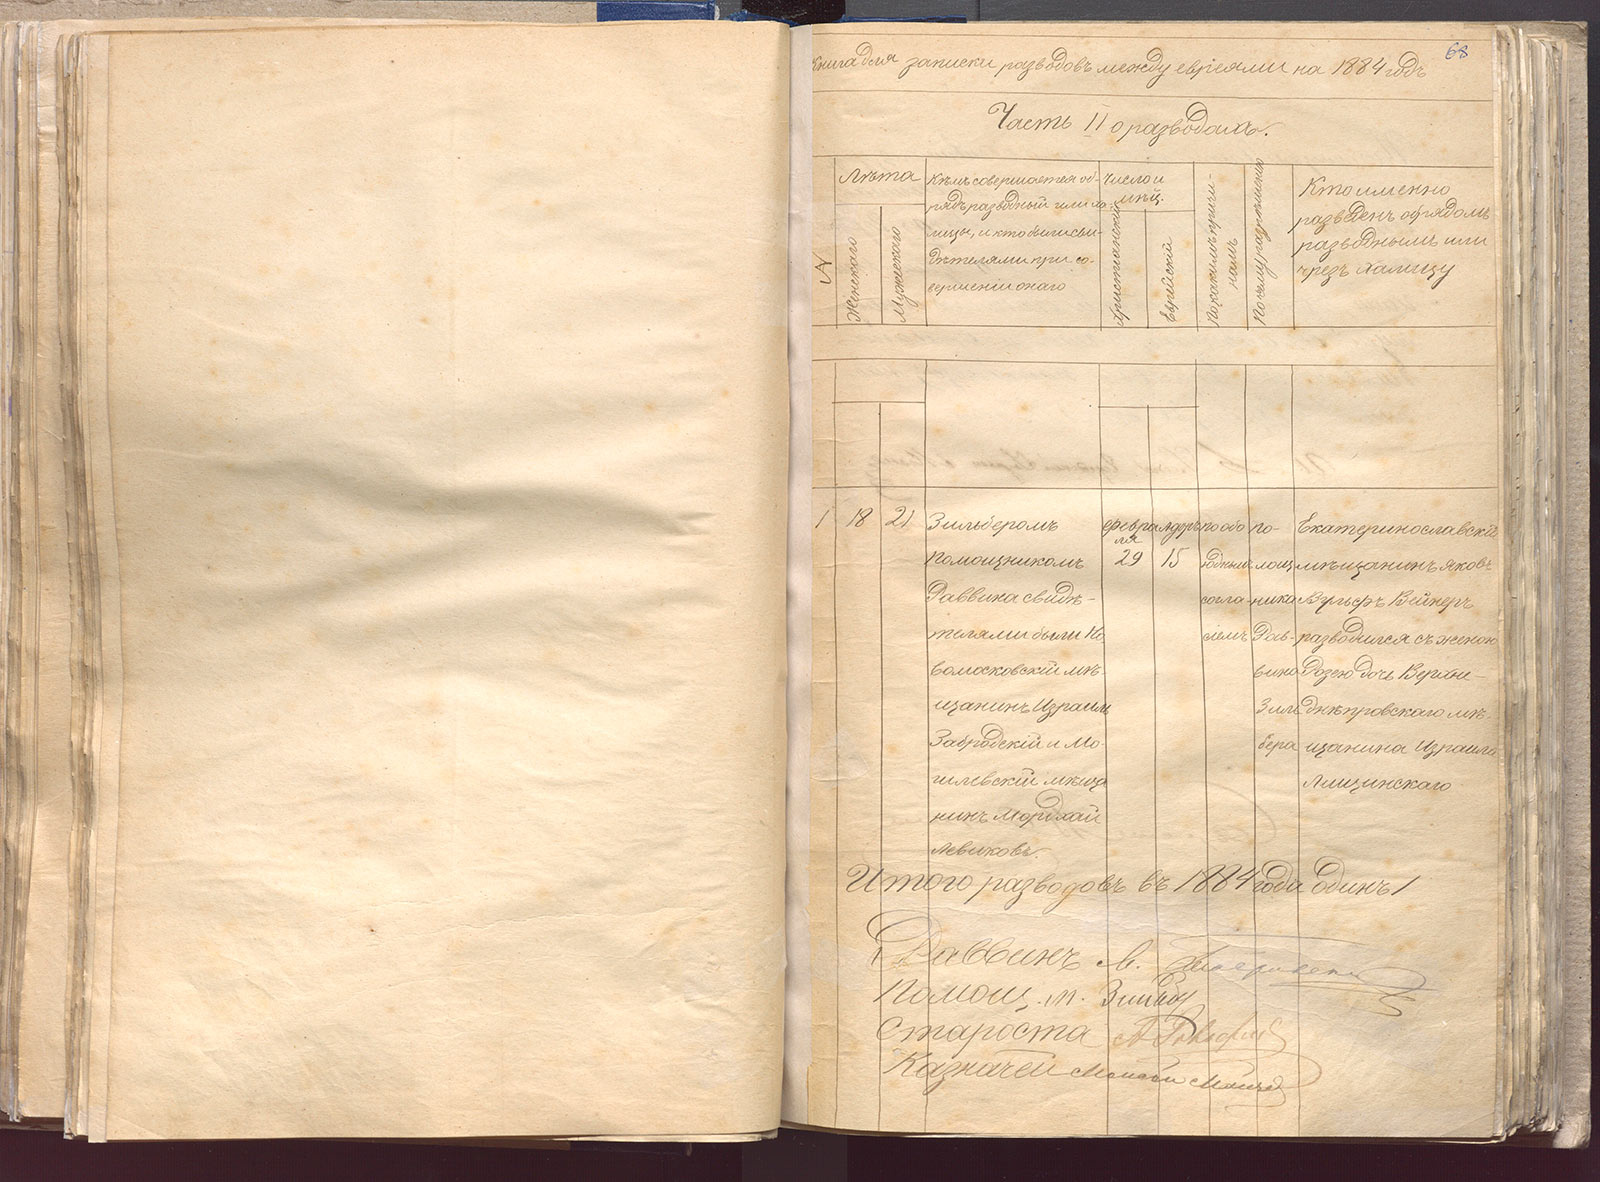 68
Книга для записки разводовъ между евреями на 1884 годъ
Часть II о разводахъ.
№
Лѣта
Женскаго
Мужескаго
Кѣмъ совершается об-
рядъ разводный или ха-
лицы, и кто были сви-
дѣтелями при со-
вершеніи онаго
Число и
мѣц.
Христіанскій
Еврейскій
По какимъ причи-
намъ
По чьему разрѣшенію
Кто именно
разведенъ обрядомъ
разводнымъ или
чрезъ халицу
1
18
21
Зильберомъ
помощникомъ
Раввина свидѣ-
телями были Но
вомосковскій мѣ-
щанинъ Израиль
Забродскій и Мо-
гилевскій мѣща
нинъ Мордхай
Левиковъ.
февра
ля
29
адоръ
15
по обо
юдным
согла
сіемъ
по-
мощ
ника
Рав-
вина
Зиль
бера
Екатеринославскій
мѣщанинъ Яковъ
Вульфъ Вейнеръ
разводился съ женою
Розею дочь Верхне-
днѣпровскаго мѣ-
щанина Израиля
Лищинскаго
Итого разводовъ въ 1884 года одинъ 1
Раввинъ Л.
Помощ. М. Зильбер
Староста А.
Казначей Моисей